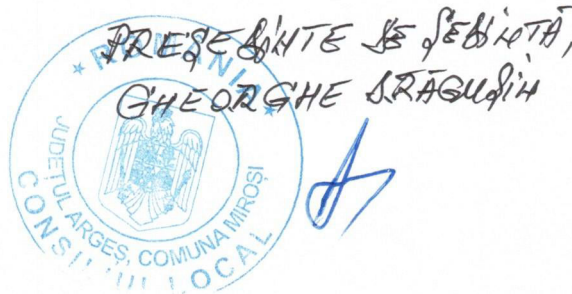 PREȘEDINTE DE ȘEDINȚĂ,
GHEORGHE DRĂGUȘIN
* ROMÂNIA *
JUDEȚUL ARGEȘ, COMUNA MIROȘI
CONSILIUL LOCAL